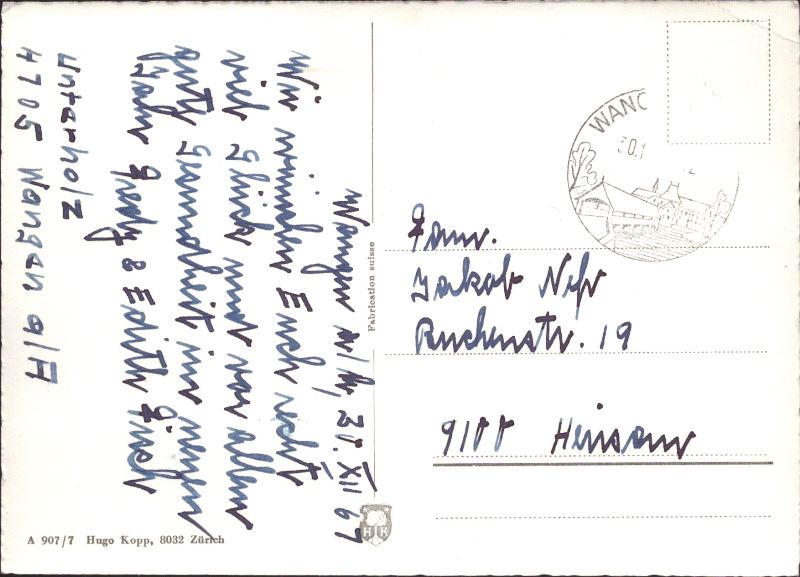 Wangen a/A, 30. XII 67
Wir wünschen Euch recht
viel Glück und vor allem
gute Gesundheit im neuen
Jahr
& Edith
Unterholz
4705 Wangen a/A
Fabrication suisse
WANG
30.1
Fam.
Jakob Nef
Buchenstr. 19
9100 Herisau
HK
A 907/7 Hugo Kopp, 8032 Zürich